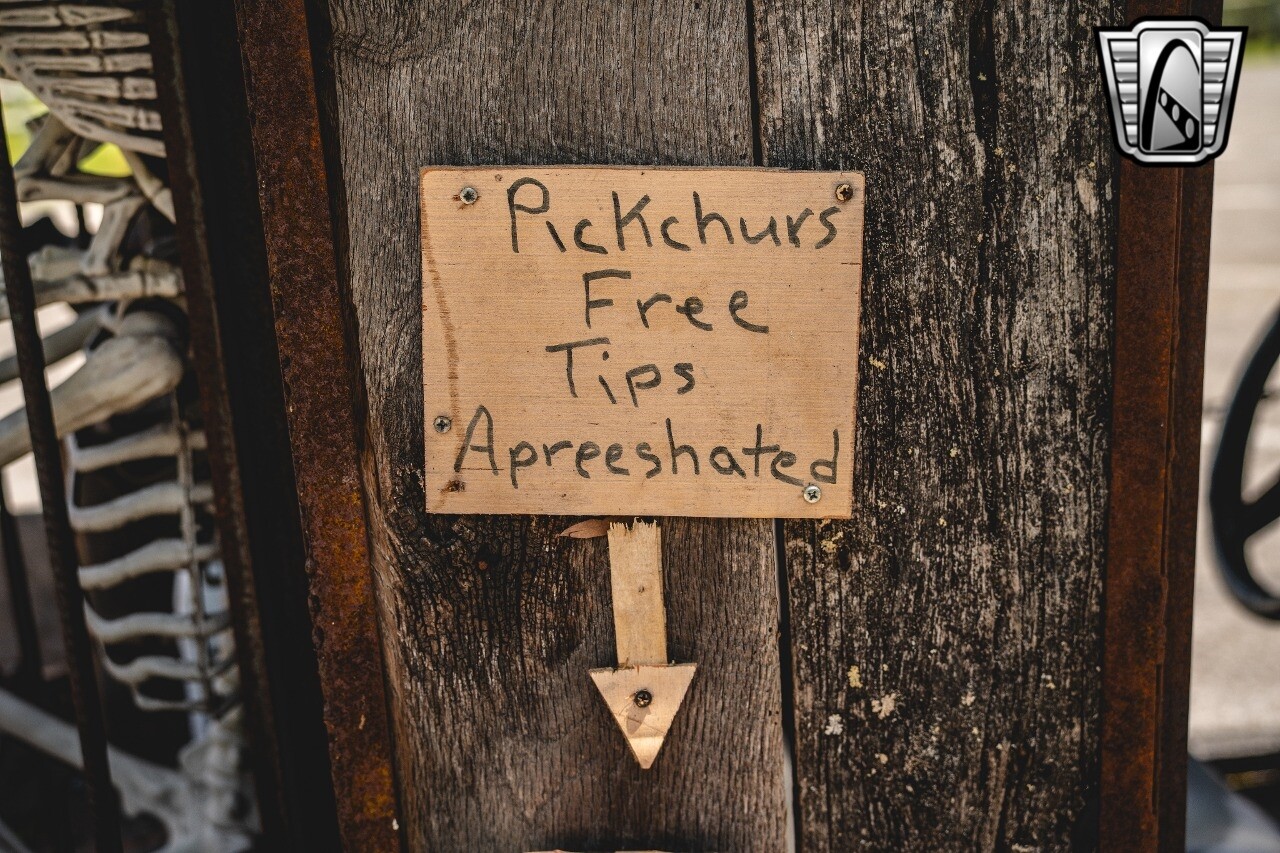 Pickchurs
Free
Tips
Apreeshated